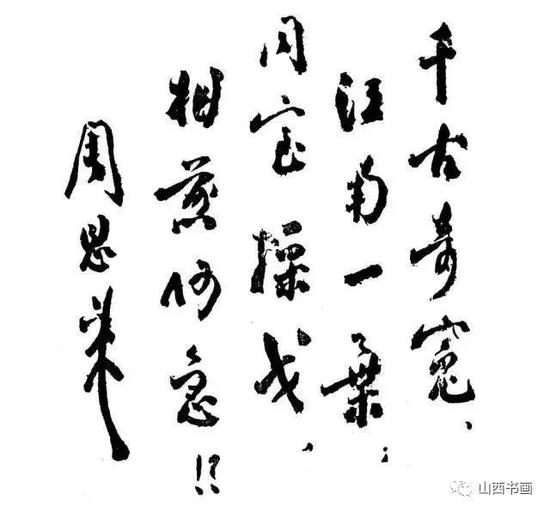 千古奇冤、
江南一葉；
同室操戈、
相煎何急？！
周恩来
山西书画